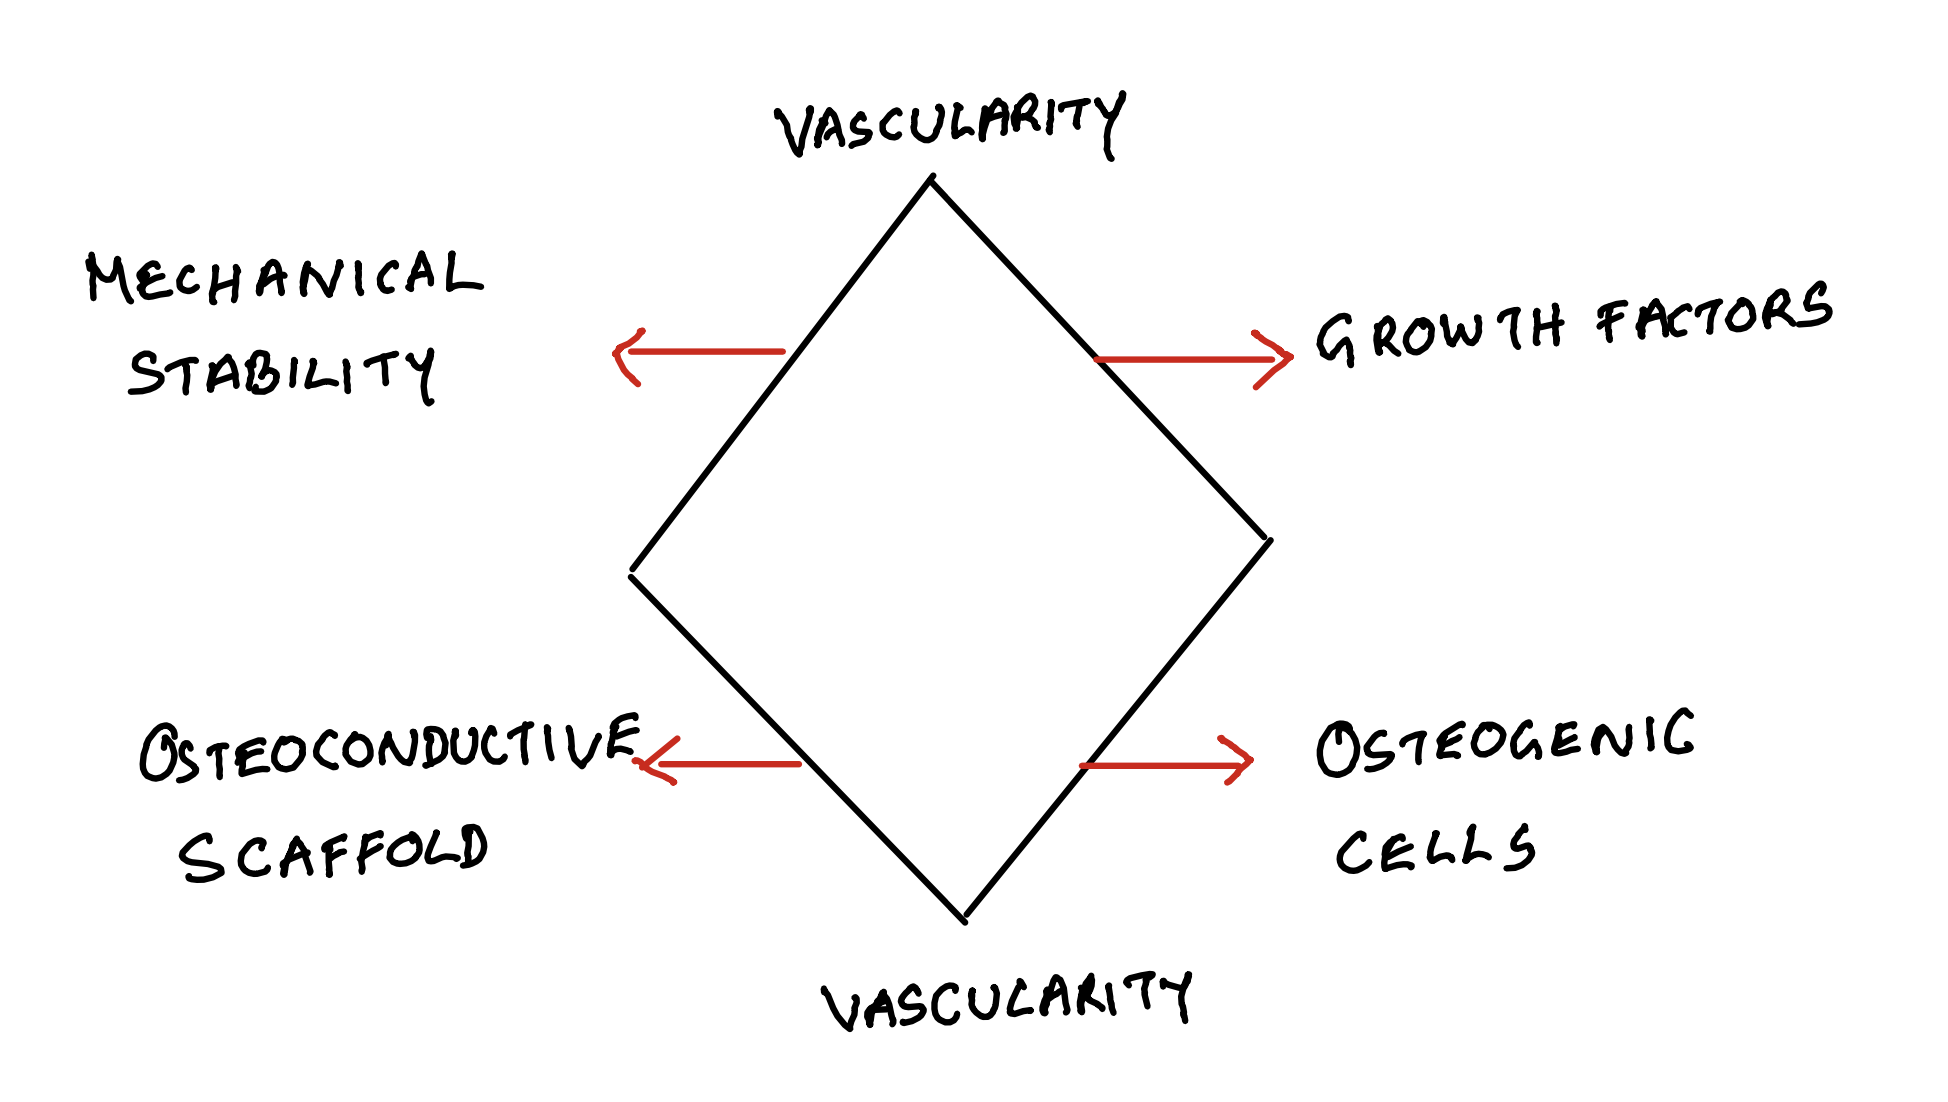 VASCULARITY
MECHANICAL
STABILITY
GROWTH FACTORS
OSTEOCONDUCTIVE
SCAFFOLD
OSTEOGENIC
CELLS
VASCULARITY